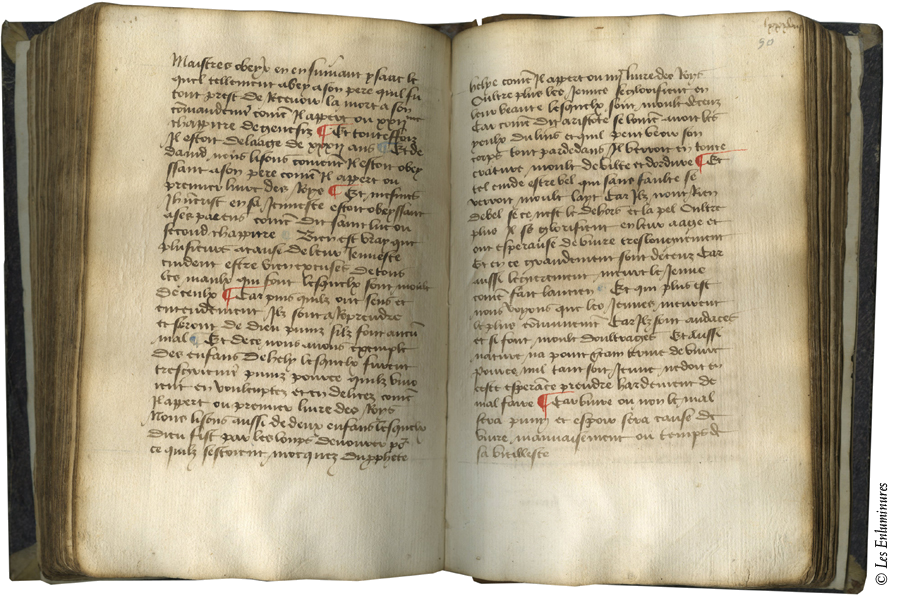 Maistres obeyr en ensuivant ysaac le
quel tellement obey a son pere quil fu
tout prest de recevoir la mort a son
comandemt come Il appert ou xxii
chappitre de genesis ¶ Et touteffoiz
Il estoit de laage de xxxii ans ¶ Et de
david nous lisons coment Il estoit obey
ssant a son pere come Il appert ou
premier livre des Roys ¶ Et mesmes
Ihucrist en sa Jennesse estoit obeyssant
a ses parens come dit saint luc ou
second chappitre Bien est vray que
plusieurs a cause de leur Jennesse
cuident estre bien excusez de tous
les maulx qui font lesquelx sont moult
deceuz ¶ Car puis quilz ont sens et
entendement Ilz sont a Reprendre
et seront de dieu puniz silz font aucun
mal ¶ Et de ce nous avons exemple
des enfans de hely lesquelx furent
tresgriefment puniz pource quilz vivo
ient en voluptez et en delices come
Il appert ou premier livre des Roys
Nous lisons aussi de deux enfans lesquelx
dieu fist par les loups devourer po
ce quilz sestoient mocquez du pphete
50
helye come Il appert ou livre des Roys
Oultre plus les Jennes se glorifient en
leur beaute lesquelx sont moult deceuz
Car come dit aristote se lomme avoit les
yeulx du lins et quil peust veoir son
corps tout par dedans Il verroit en toute
creature moult de vilte et dordure ¶ Et
tel cuide estre bel qui sans faulte se
verroit moult layt Car Ilz nont Rien
de bel se ce nest le dehors et la pel Oultre
plus Il se glorifient en leur aage et
ont esperance de vivre treslonguement
Et en ce grandement sont deceuz Car
aussi legierement meurt le Jenne
come fait lancien Et qui plus est
nous voyons que les Jennes meurent
le plus communemt Car Ilz sont audaces
et si font moult doultrages Et aussi
nature na point certain terme de vivre
Pource nul tant soit Jenne ne doit en
ceste esperance prendre hardement de
mal faire ¶ Car vivre ou non le mal
sera puny et espoir sera cause de
vivre mauvaisement ou temps de
sa vieillesse
© Les Enluminures